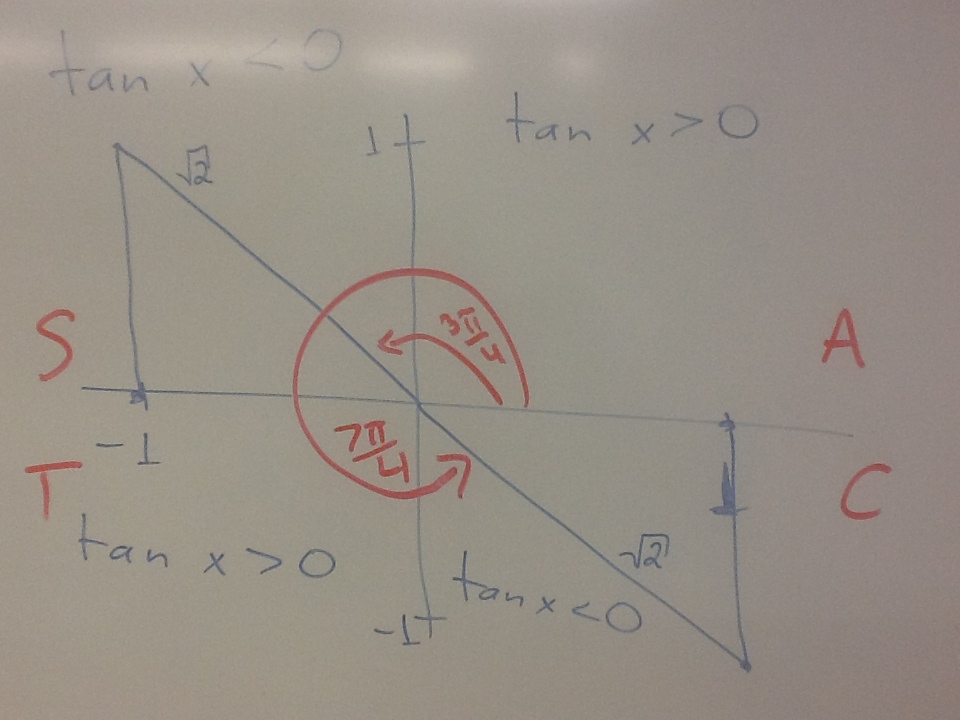 tan x < 0
tan x > 0
1
√2
3π/4
S
A
-1
7π/4
T
C
1
tan x > 0
√2
tan x < 0
-1